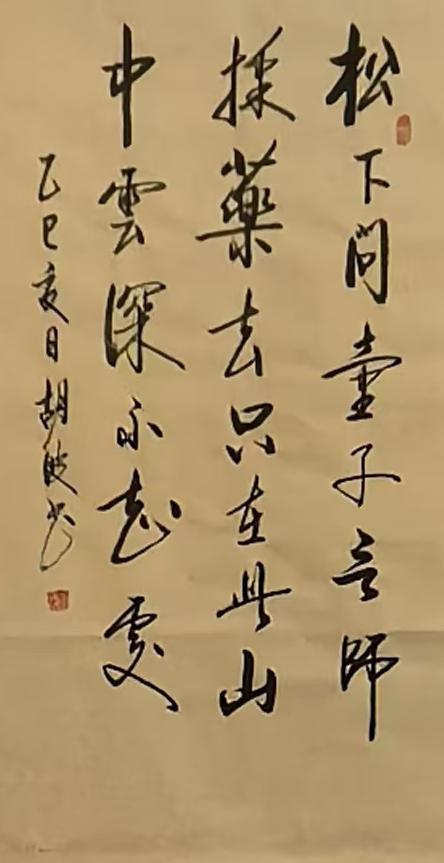 松下問童子言師
採藥去只在此山
中雲深不知處
乙巳夏日胡书